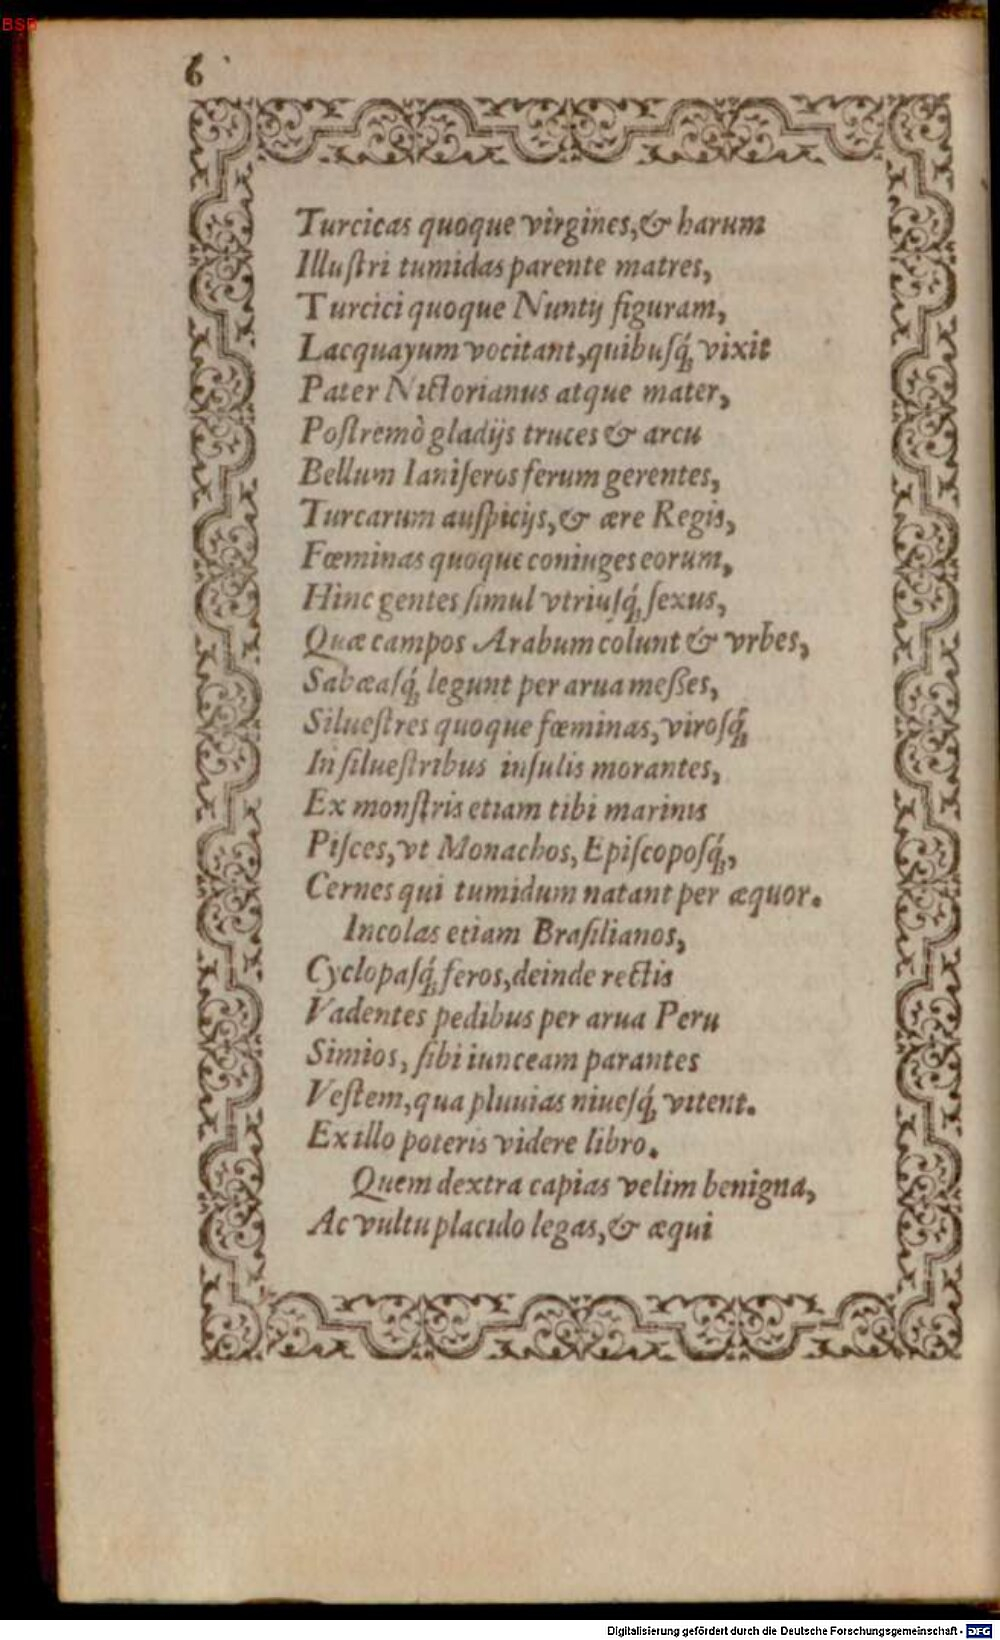 BSB
6
Turcicas quoque virgines, & harum
Illuſtri tumidas parente matres,
Turcici quoque Nuntij figuram,
Lacquayum vocitant, quibuſq́; vixit
Pater Nictorianus atque mater,
Poſtremò gladijs truces & arcu
Bellum Ianiſeros ferum gerentes,
Turcarum auſpicijs, & ære Regis,
Fœminas quoque coniuges eorum,
Hinc gentes ſimul vtriuſq́; ſexus,
Quæ campos Arabum colunt & vrbes,
Sabæaſq́; legunt per arua meſſes,
Silueſtres quoque fœminas, viroſq́;
In ſilueſtribus inſulis morantes,
Ex monſtris etiam tibi marinis
Piſces, vt Monachos, Epiſcopoſq́;,
Cernes qui tumidum natant per æquor.
Incolas etiam Braſilianos,
Cyclopaſq́; feros, deinde rectis
Vadentes pedibus per arua Peru
Simios, ſibi iunceam parantes
Veſtem, qua pluuias niueſq́; vitent.
Ex illo poteris videre libro.
Quem dextra capias velim benigna,
Ac vultu placido legas, & æqui
Digitalisierung gefördert durch die Deutsche Forschungsgemeinschaft - DFG